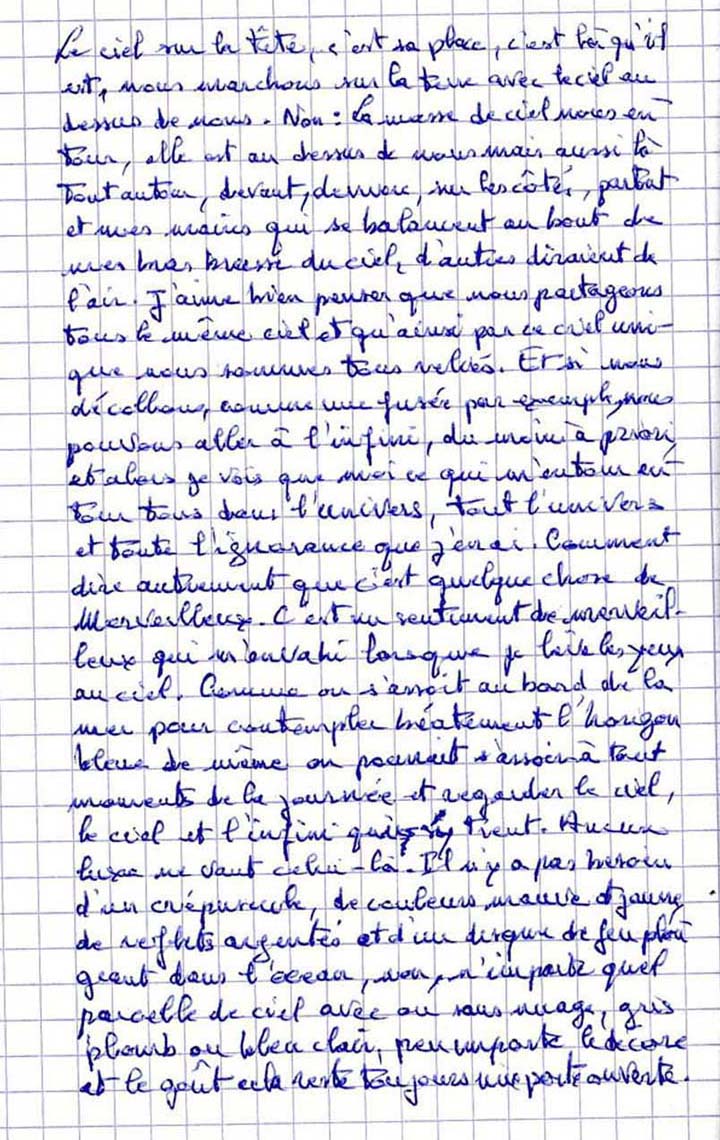 Le ciel sur la tête, c'est sa place, c'est là qu'il
est, nous marchons sur la terre avec le ciel au
dessus de nous. Non : La masse de ciel nous en-
toure, elle est au dessus de nous mais aussi là
tout autour, devant, derrière, sur les côtés, partout
et mes mains qui se balancent au bout de
mes bras brasse du ciel, d'autres diraient de
l'air. J'aime bien penser que nous partageons
tous le même ciel et qu'ainsi par ce ciel uni-
que nous sommes tous reliés. Et si nous
décollons, comme une fusée par exemple, nous
pouvons aller à l'infini, du moins à priori,
et alors je vois que moi ce qui m'entoure en-
toure tous dans l'univers, tout l'univers
et toute l'ignorance que j'en ai. Comment
dire autrement que c'est quelque chose de
Merveilleux. C'est un sentiment de merveil-
leux qui m'envahi lorsque je lève les yeux
au ciel. Comme on s'assoit au bord de la
mer pour contempler béatement l'horizon
bleue de même on pourrait s'assoir à tout
moments de la journée et regarder le ciel,
le ciel et l'infini qui y tient. Aucun
luxe ne vaut celui-là. Il n'y a pas besoin
d'un crépuscule, de couleurs mauve et jaune,
de reflets argentés et d'un disque de feu plon
geant dans l'océan, non, n'importe quel
parcelle de ciel avec ou sans nuage, gris
plomb ou bleu clair, peu importe le décore
et le goût cela reste toujours une porte ouverte.